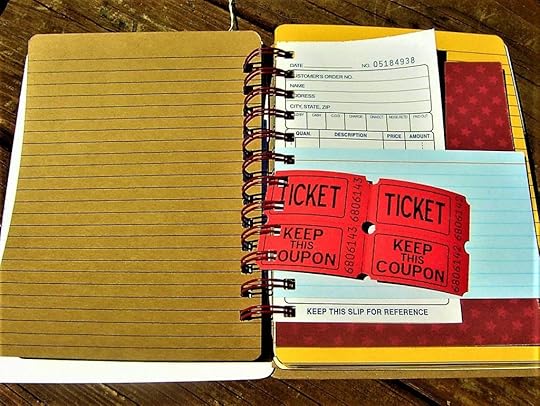 DATE NO. 05184938
CUSTOMER'S ORDER NO.
NAME
ADDRESS
CITY, STATE, ZIP
CASH C.O.D. CHARGE
QUAN. DESCRIPTION PRICE AMOUNT
TICKET 6806143
KEEP THIS COUPON 6806143
TICKET 6806142
KEEP THIS COUPON 6806142
KEEP THIS SLIP FOR REFERENCE